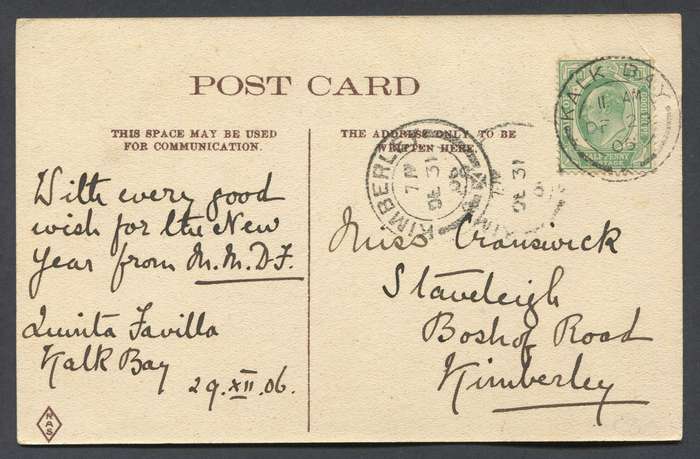 POST CARD
THIS SPACE MAY BE USED
FOR COMMUNICATION.
THE ADDRESS ONLY TO BE
WRITTEN HERE.
With every good
wish for the New
Year from M.M.D.F.
Quinta Favilla
Kalk Bay
29.XII.06.
Miss Cranswick
Staveleigh
Boshof Road
Kimberley
KALK BAY
11 AM
HALF PENNY
POSTAGE
KIMBERL
7 PM
DE 31
06
DE 31
NAS